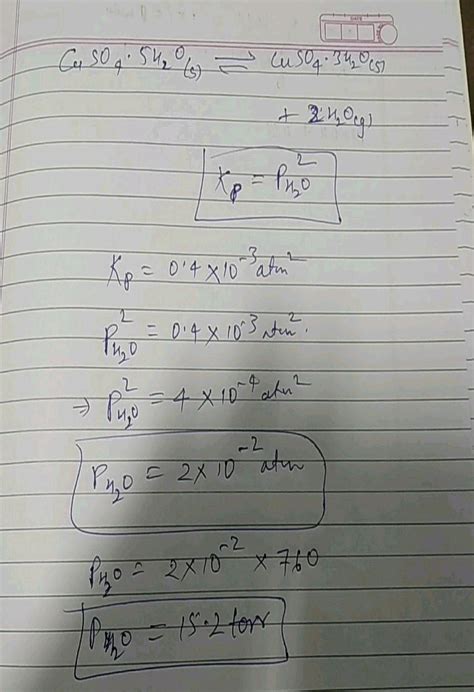 DATE
CuSO₄·5H₂O(s) ⇌ CuSO₄·3H₂O(s)
+ 2H₂O(g)
Kp = P²H₂O
Kp = 0.4 × 10⁻³ atm²
P²H₂O = 0.4 × 10⁻³ atm².
⇒ P²H₂O = 4 × 10⁻⁴ atm²
PH₂O = 2 × 10⁻² atm
PH₂O = 2 × 10⁻² × 760
PH₂O = 15.2 torr